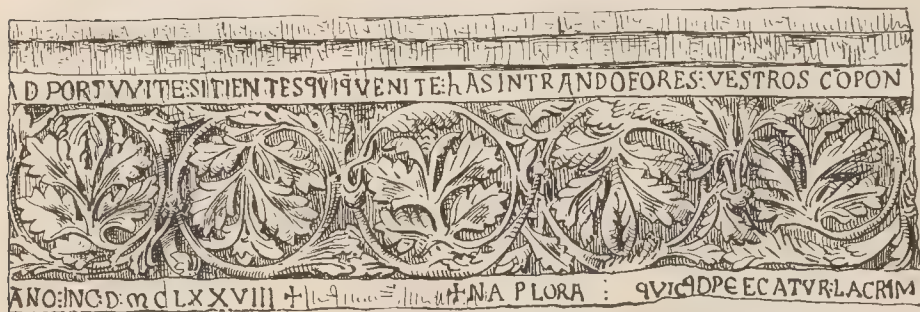 AD PORTVVITE:SITIENTESQVIQVENITE:hASINTRANDOFORES:VESTROS COPON
ANO:INC:D:MCLXXVIII + +NA PLORA : QVICQDPEECATVR:LACRIM